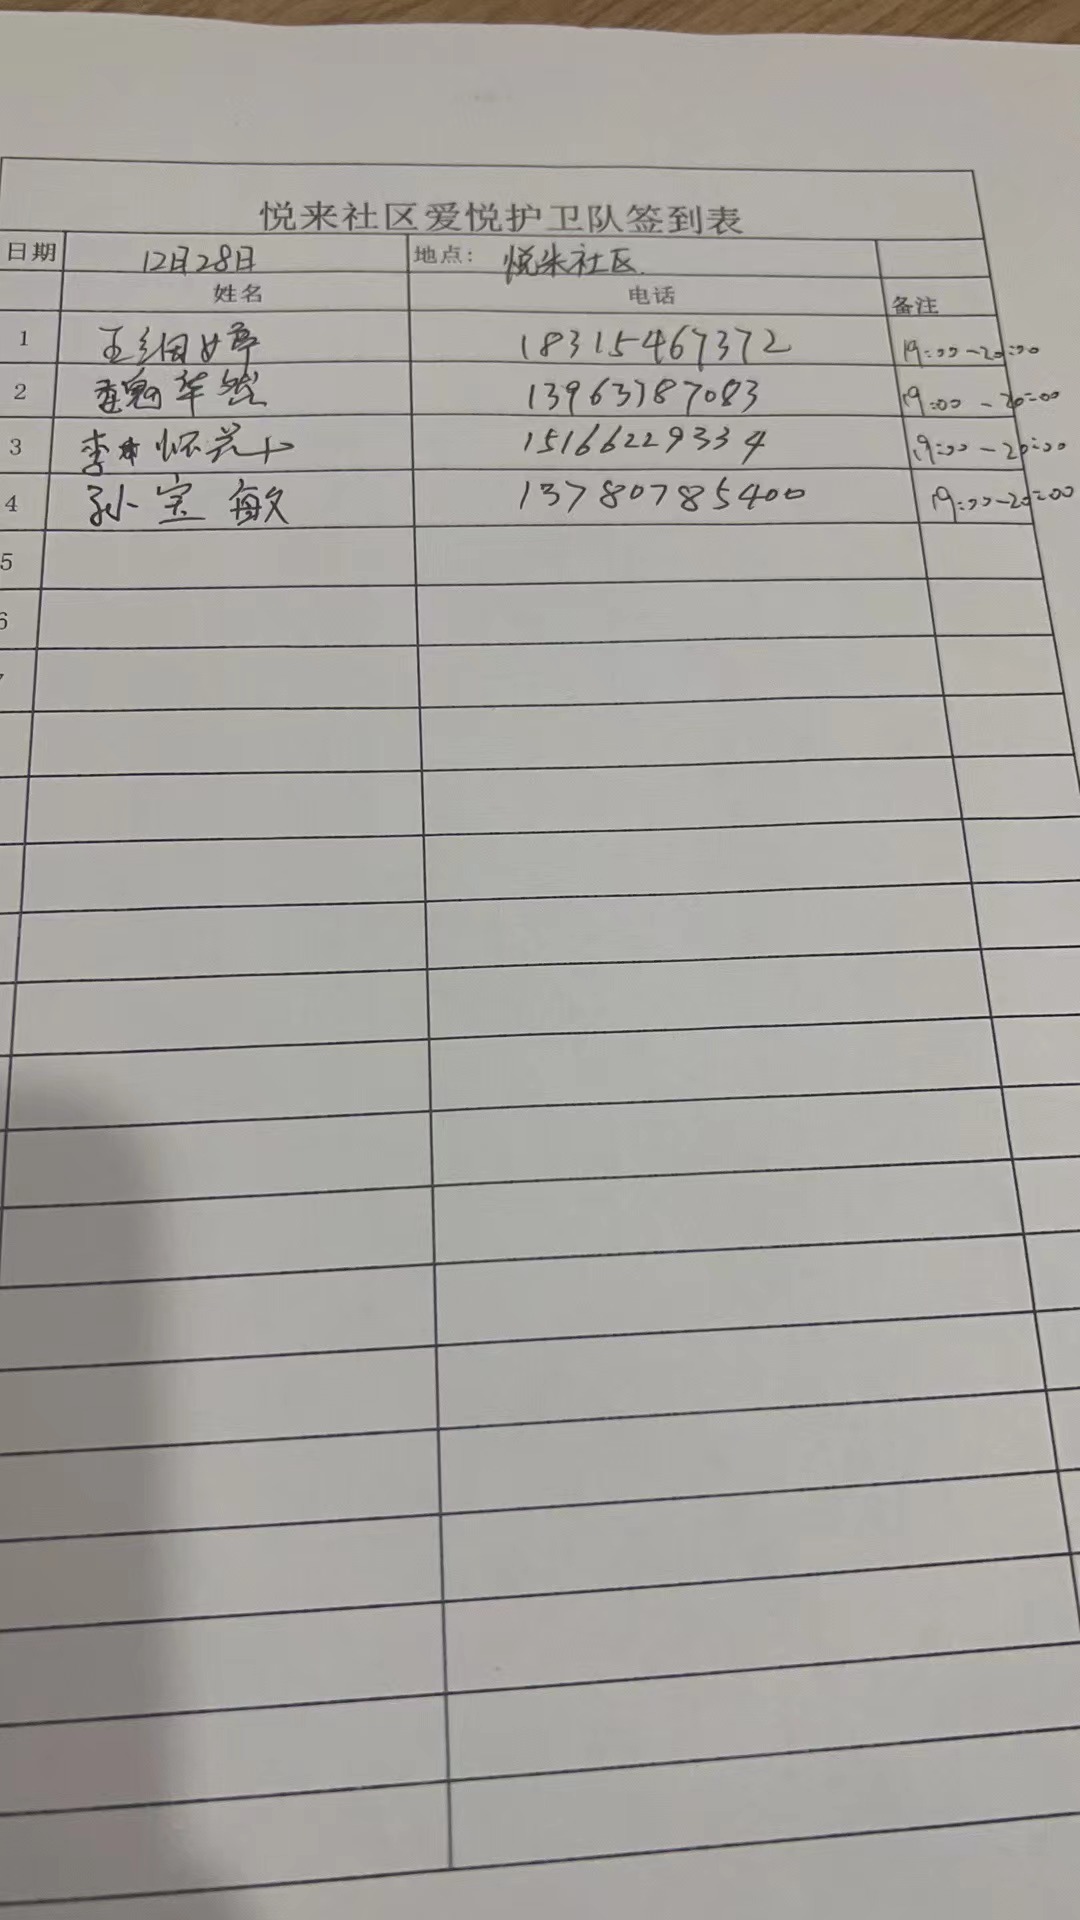 悦来社区爱悦护卫队签到表
日期 12月28日 地点: 悦来社区.
姓名 电话 备注
1 王细婷 18315467372 19:00-20:00
2 魏华 13963787083 19:00-20:00
3 李怀 15166229334 19:00-20:00
4 孙宝敏 13780785400 19:00-20:00
5
6